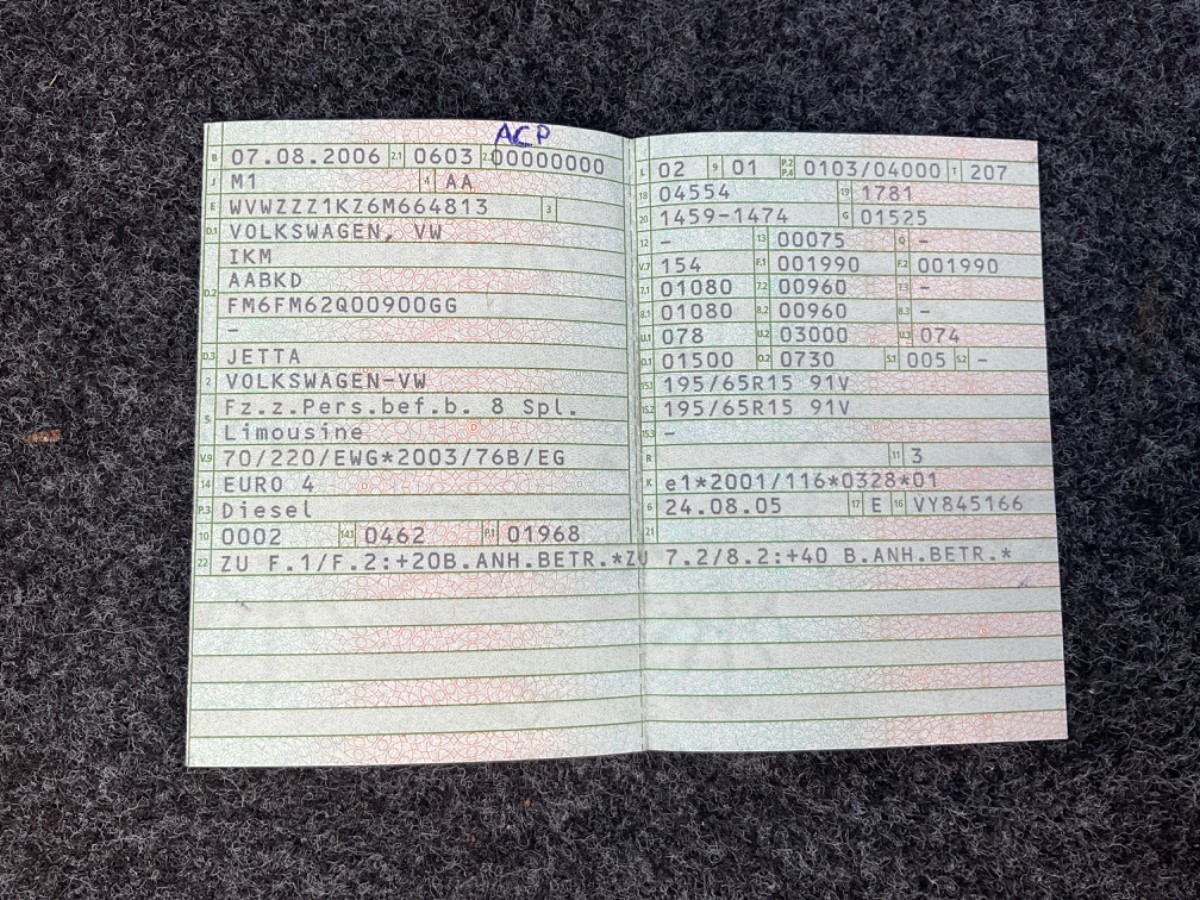 ACP
B 07.08.2006 2.1 0603 2.2 00000000
J M1 4 AA
E WVWZZZ1KZ6M664813 3
D.1 VOLKSWAGEN, VW
IKM
D.2 AABKD
FM6FM62Q00900GG
–
D.3 JETTA
2 VOLKSWAGEN-VW
5 Fz.z.Pers.bef.b. 8 Spl.
Limousine
V.9 70/220/EWG*2003/76B/EG
14 EURO 4
P.3 Diesel
10 0002 14.1 0462 P.1 01968
L 02 9 01 P.2 P.4 0103/04000 T 207
18 04554 19 1781
20 1459-1474 G 01525
12 – 13 00075 Q –
V.7 154 F.1 001990 F.2 001990
7.1 01080 7.2 00960 7.3 –
8.1 01080 8.2 00960 8.3 –
U.1 078 U.2 03000 U.3 074
O.1 01500 O.2 0730 S.1 005 S.2 –
15.1 195/65R15 91V
15.2 195/65R15 91V
15.3 –
R 11 3
K e1*2001/116*0328*01
6 24.08.05 17 E 16 VY845166
21
22 ZU F.1/F.2:+20B.ANH.BETR.*ZU 7.2/8.2:+40 B.ANH.BETR.*